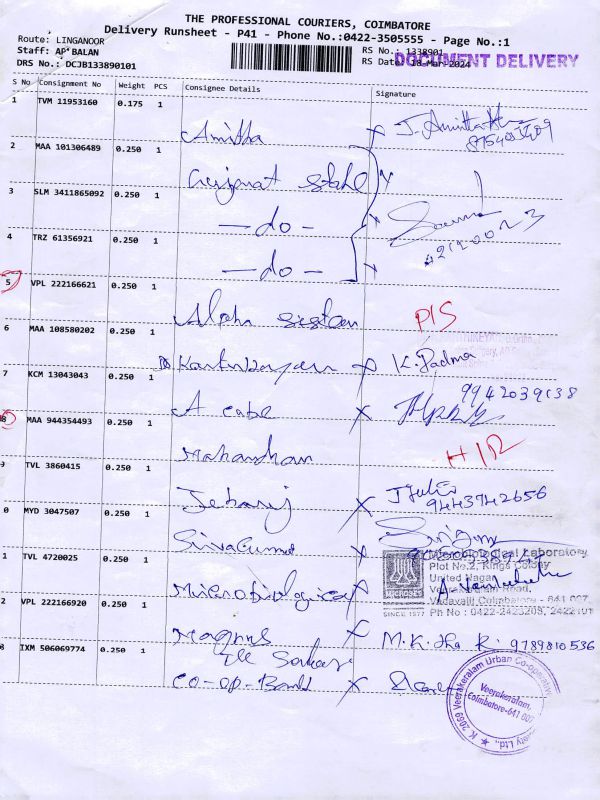 THE PROFESSIONAL COURIERS, COIMBATORE
Delivery Runsheet - P41 - Phone No.:0422-3505555 - Page No.:1
Route: LINGANOOR
Staff: AP BALAN
DRS No.: DCJB133890101
RS No.: 1338901
RS Date: 18-Mar-2024
DOCUMENT DELIVERY
S No Consignment No Weight PCS Consignee Details Signature
1 TVM 11953160 0.175 1
Amitha X J. Amitha
2 MAA 101306489 0.250 1
Gujarat State
3 SLM 3411865092 0.250 1
- do -
4 TRZ 61356921 0.250 1
- do -
5 VPL 222166621 0.250 1
Alpha sistem PIS
6 MAA 108580202 0.250 1
X K. Padma
7 KCM 13043043 0.250 1
9942039138
A cube X
8 MAA 944354493 0.250 1
HIR
TVL 3860415 0.250 1
Jebaraj X
9443742656
0 MYD 3047507 0.250 1
Sivakumar
1 TVL 4720025 0.250 1
Microbiological
Microbiological Laboratory
Plot No.2, Kings Colony
United Nagar
Veerakeralam Road,
Vadavalli Coimbatore - 641 007
Ph No : 0422-2423209, 2422101
SINCE 1977
2 VPL 222166920 0.250 1
Magnus X M.K. R. 9789810536
3 IXM 506069774 0.250 1
Co-op-Bank X
K 2059 Veerakeralam Urban Co-operative
Veerakeralam,
Coimbatore-641 007